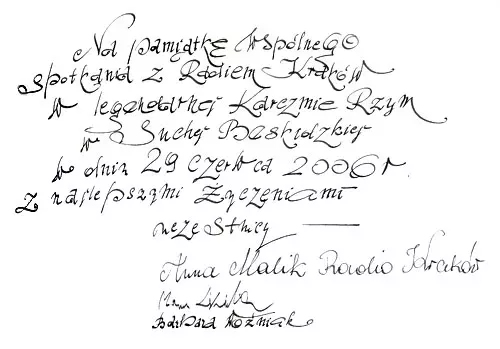 Na pamiątkę wspólnego
spotkania z Radiem Kraków
w legendarnej Karczmie Rzym
w Suchej Beskidzkiej
w dniu 29 czerwca 2006 r.
z najlepszymi życzeniami
uczestnicy
Anna Malik Radio Kraków
Barbara Woźniak